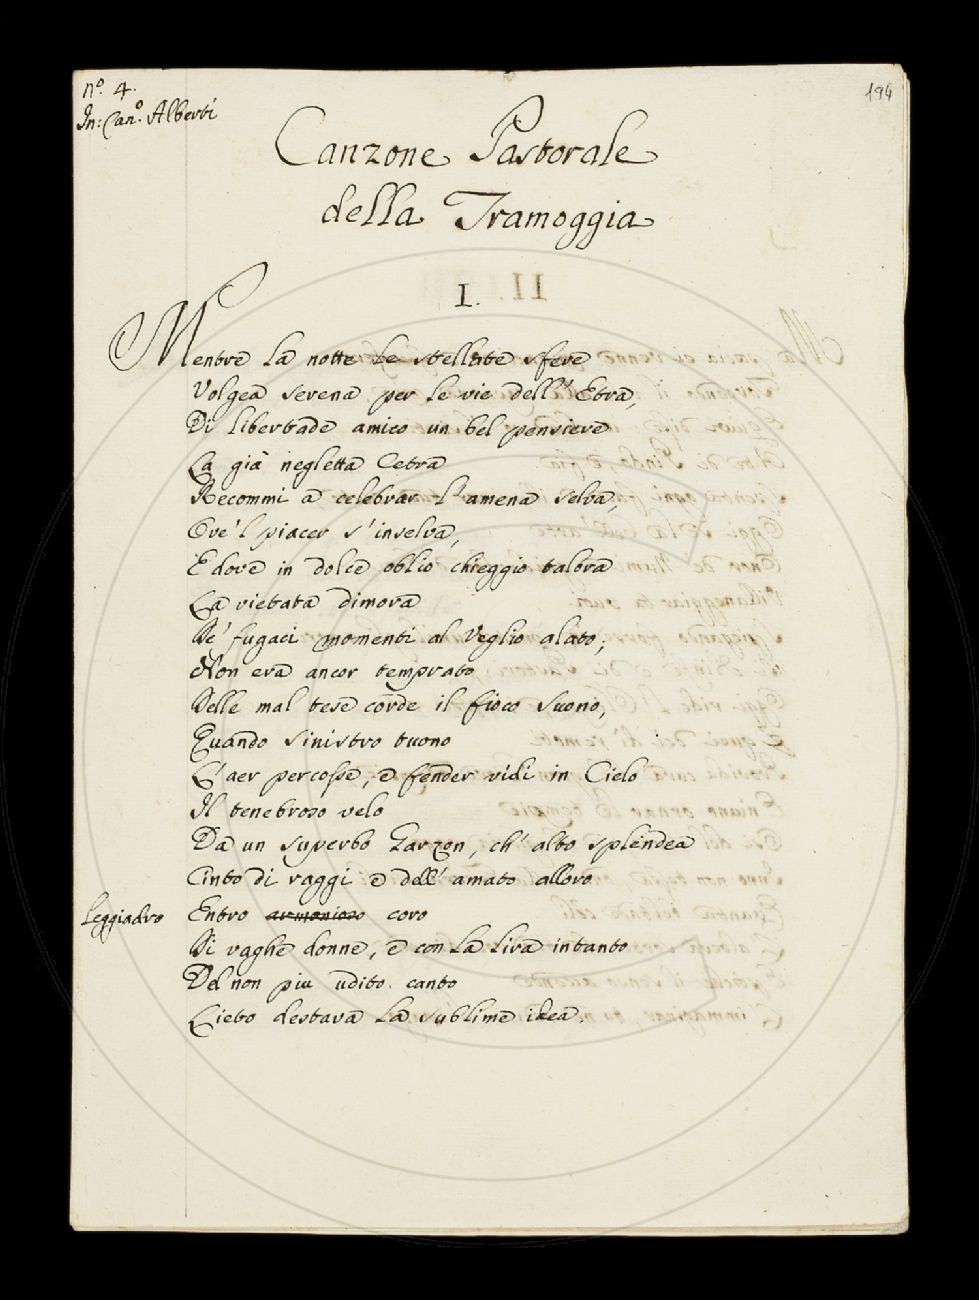 nº. 4.
In: Can.º Alberti
194
Canzone Pastorale
della Tramoggia
I.
Mentre la notte le stellate sfere
Volgea serena per le vie dell' Etra,
Di libertade amico un bel pensiere
La già negletta Cetra
Recommi a celebrar l' amena selva,
Ove 'l piacer s' inselva,
E dove in dolce oblio chieggio talora
La vietata dimora
De' fugaci momenti al Veglio alato;
Non era ancor temprato
Delle mal tese corde il fioco suono,
Quando sinistro tuono
L' aer percosse, e fender vidi in Cielo
Il tenebroso velo
Da un superbo Garzon, ch' alto splendea
Cinto di raggi e dell' amato alloro
leggiadro Entro armonioso coro
Di vaghe donne, e con la Lira intanto
Del non piu udito canto
Lieto destava la sublime idea.